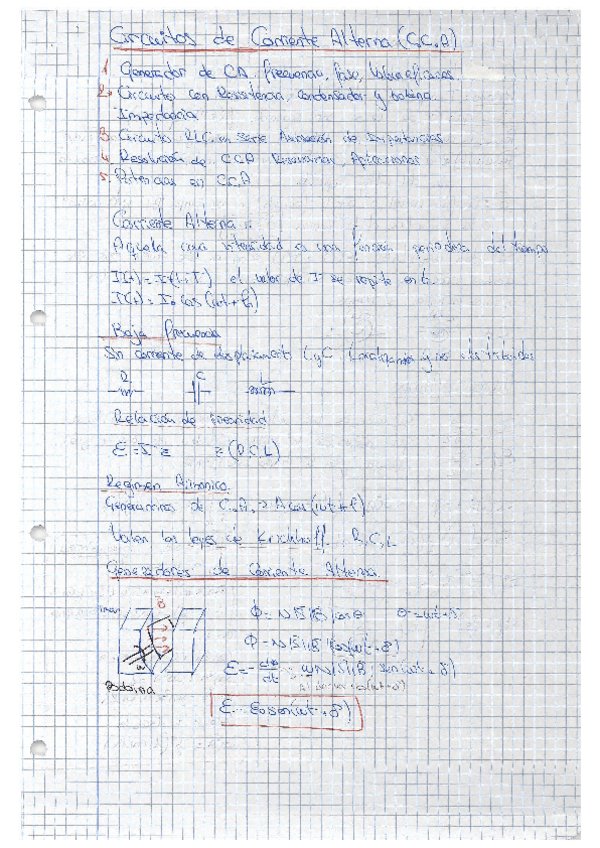 Circuitos de Corriente Alterna (C.C.A)
1. Generador de CA. frecuencia, fase, Valores eficaces.
2. Circuitos con Resistencia, condensador y bobina.
Impedancia
3. Circuito RLC en serie Asociación de Impedancias
4. Resolución de CCA Resonancia, Aplicaciones
5. Potencias en CCA
Corriente Alterna:
Aquella cuya intensidad es una función periódica del tiempo
I(t) = I(t+T) el valor de I se repite en t.
I(t) = I₀ cos(ωt+φ₀)
Baja frecuencia
Sin corriente de desplazamiento L y C localizados y no distribuidos
R C L
Relación de linealidad
ε = I z z(R,C,L)
Régimen Armónico
Generadores de C.A. → A cos(ωt+φ)
Valen las leyes de Kirchhoff R, C, L
Generadores de Corriente Alterna.
iman B
Φ = N|S||B| cos θ θ = ωt+δ
Φ = N|S||B| cos(ωt+δ)
ε = -dΦ/dt = ωN|S||B| sen(ωt+δ)
Bobina
ε = ε₀ sen(ωt+δ)